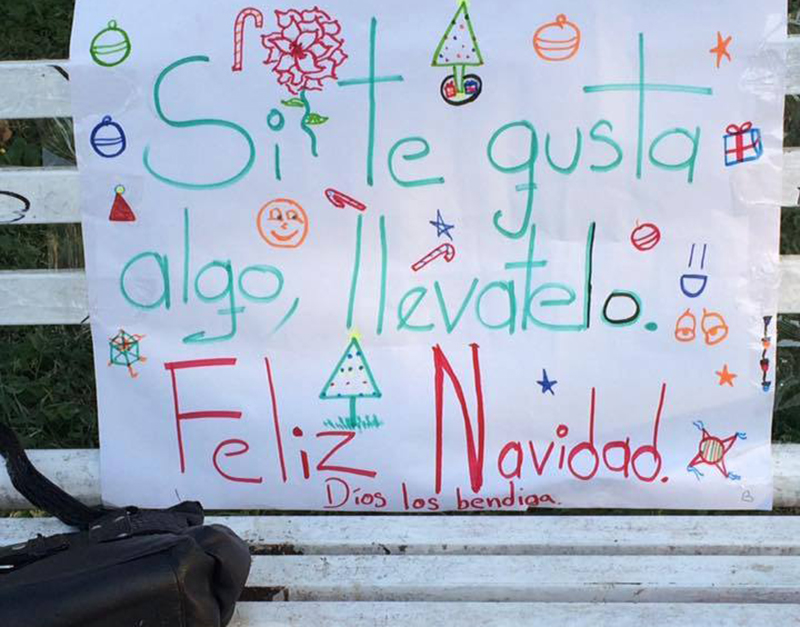 Si te gusta
algo, llevatelo.
Feliz Navidad.
Dios los bendiga.